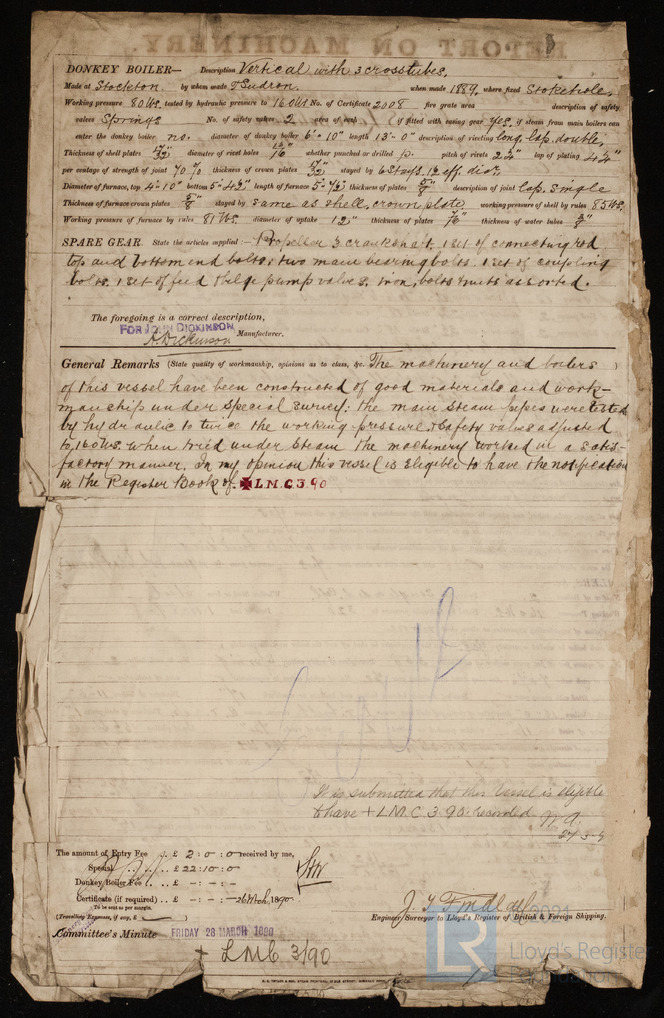 DONKEY BOILER— Description Vertical with 3 crosstubes.
Made at Stockton. by whom made T Sudron. when made 1889, where fixed Stokehole.
Working pressure 80 lbs. tested by hydraulic pressure to 160 lbs No. of Certificate 2008 fire grate area description of safety
valves Springs No. of safety valves 2 area of each if fitted with easing gear yes. if steam from main boilers can
enter the donkey boiler no. diameter of donkey boiler 6'-10" length 13'-0" description of riveting long. lap. double,
Thickness of shell plates 17/32 diameter of rivet holes 13/16" whether punched or drilled p. pitch of rivets lap of plating 4¼"
per centage of strength of joint 70% thickness of crown plates 17/32 stayed by 6 stays. eff. dia.
Diameter of furnace, top 4'-10" bottom length of furnace thickness of plates 5/8" description of joint lap. single
Thickness of furnace crown plates 5/8" stayed by same as shell, crown plate working pressure of shell by rules 85 lbs.
Working pressure of furnace by rules 81 lbs. diameter of uptake 12" thickness of plates 7/16" thickness of water tubes 3/8"
SPARE GEAR. State the articles supplied:— Propeller 3 crankshaft, 1 set of connecting rod
top and bottom end bolts: two main bearing bolts. 1 set of coupling
bolts. 1 set of feed & bilge pump valves. iron, bolts & nuts assorted.
The foregoing is a correct description,
FOR JOHN DICKINSON
A. Dickinson Manufacturer.
General Remarks (State quality of workmanship, opinions as to class, &c. The machinery and boilers )
of this vessel have been constructed of good materials and work-
manship under special survey: the main steam pipes were tested
by hydraulic to twice the working pressure & safety valves adjusted
to 160 lbs. when tried under steam the machinery worked in a satis-
factory manner. In my opinion this vessel is eligible to have the notification
in the Register Book of ✠ L.M.C 3.90
It is submitted that this vessel is eligible
to have + L M C 3.90 recorded
The amount of Entry Fee .. £ 2 : 0 : 0 received by me,
Special .. .. £ 22 : 10 : 0
Donkey Boiler Fee .. .. £ - : - : -
Certificate (if required) .. £ - : - : - 26 March 1890
To be sent as per margin.
(Travelling Expenses, if any, £ )
J. T. Findlay
Engineer Surveyor to Lloyd's Register of British & Foreign Shipping.
Committee's Minute FRIDAY 28 MARCH 1890
+ LMC 3/90
LR
Lloyd's Register
Foundation